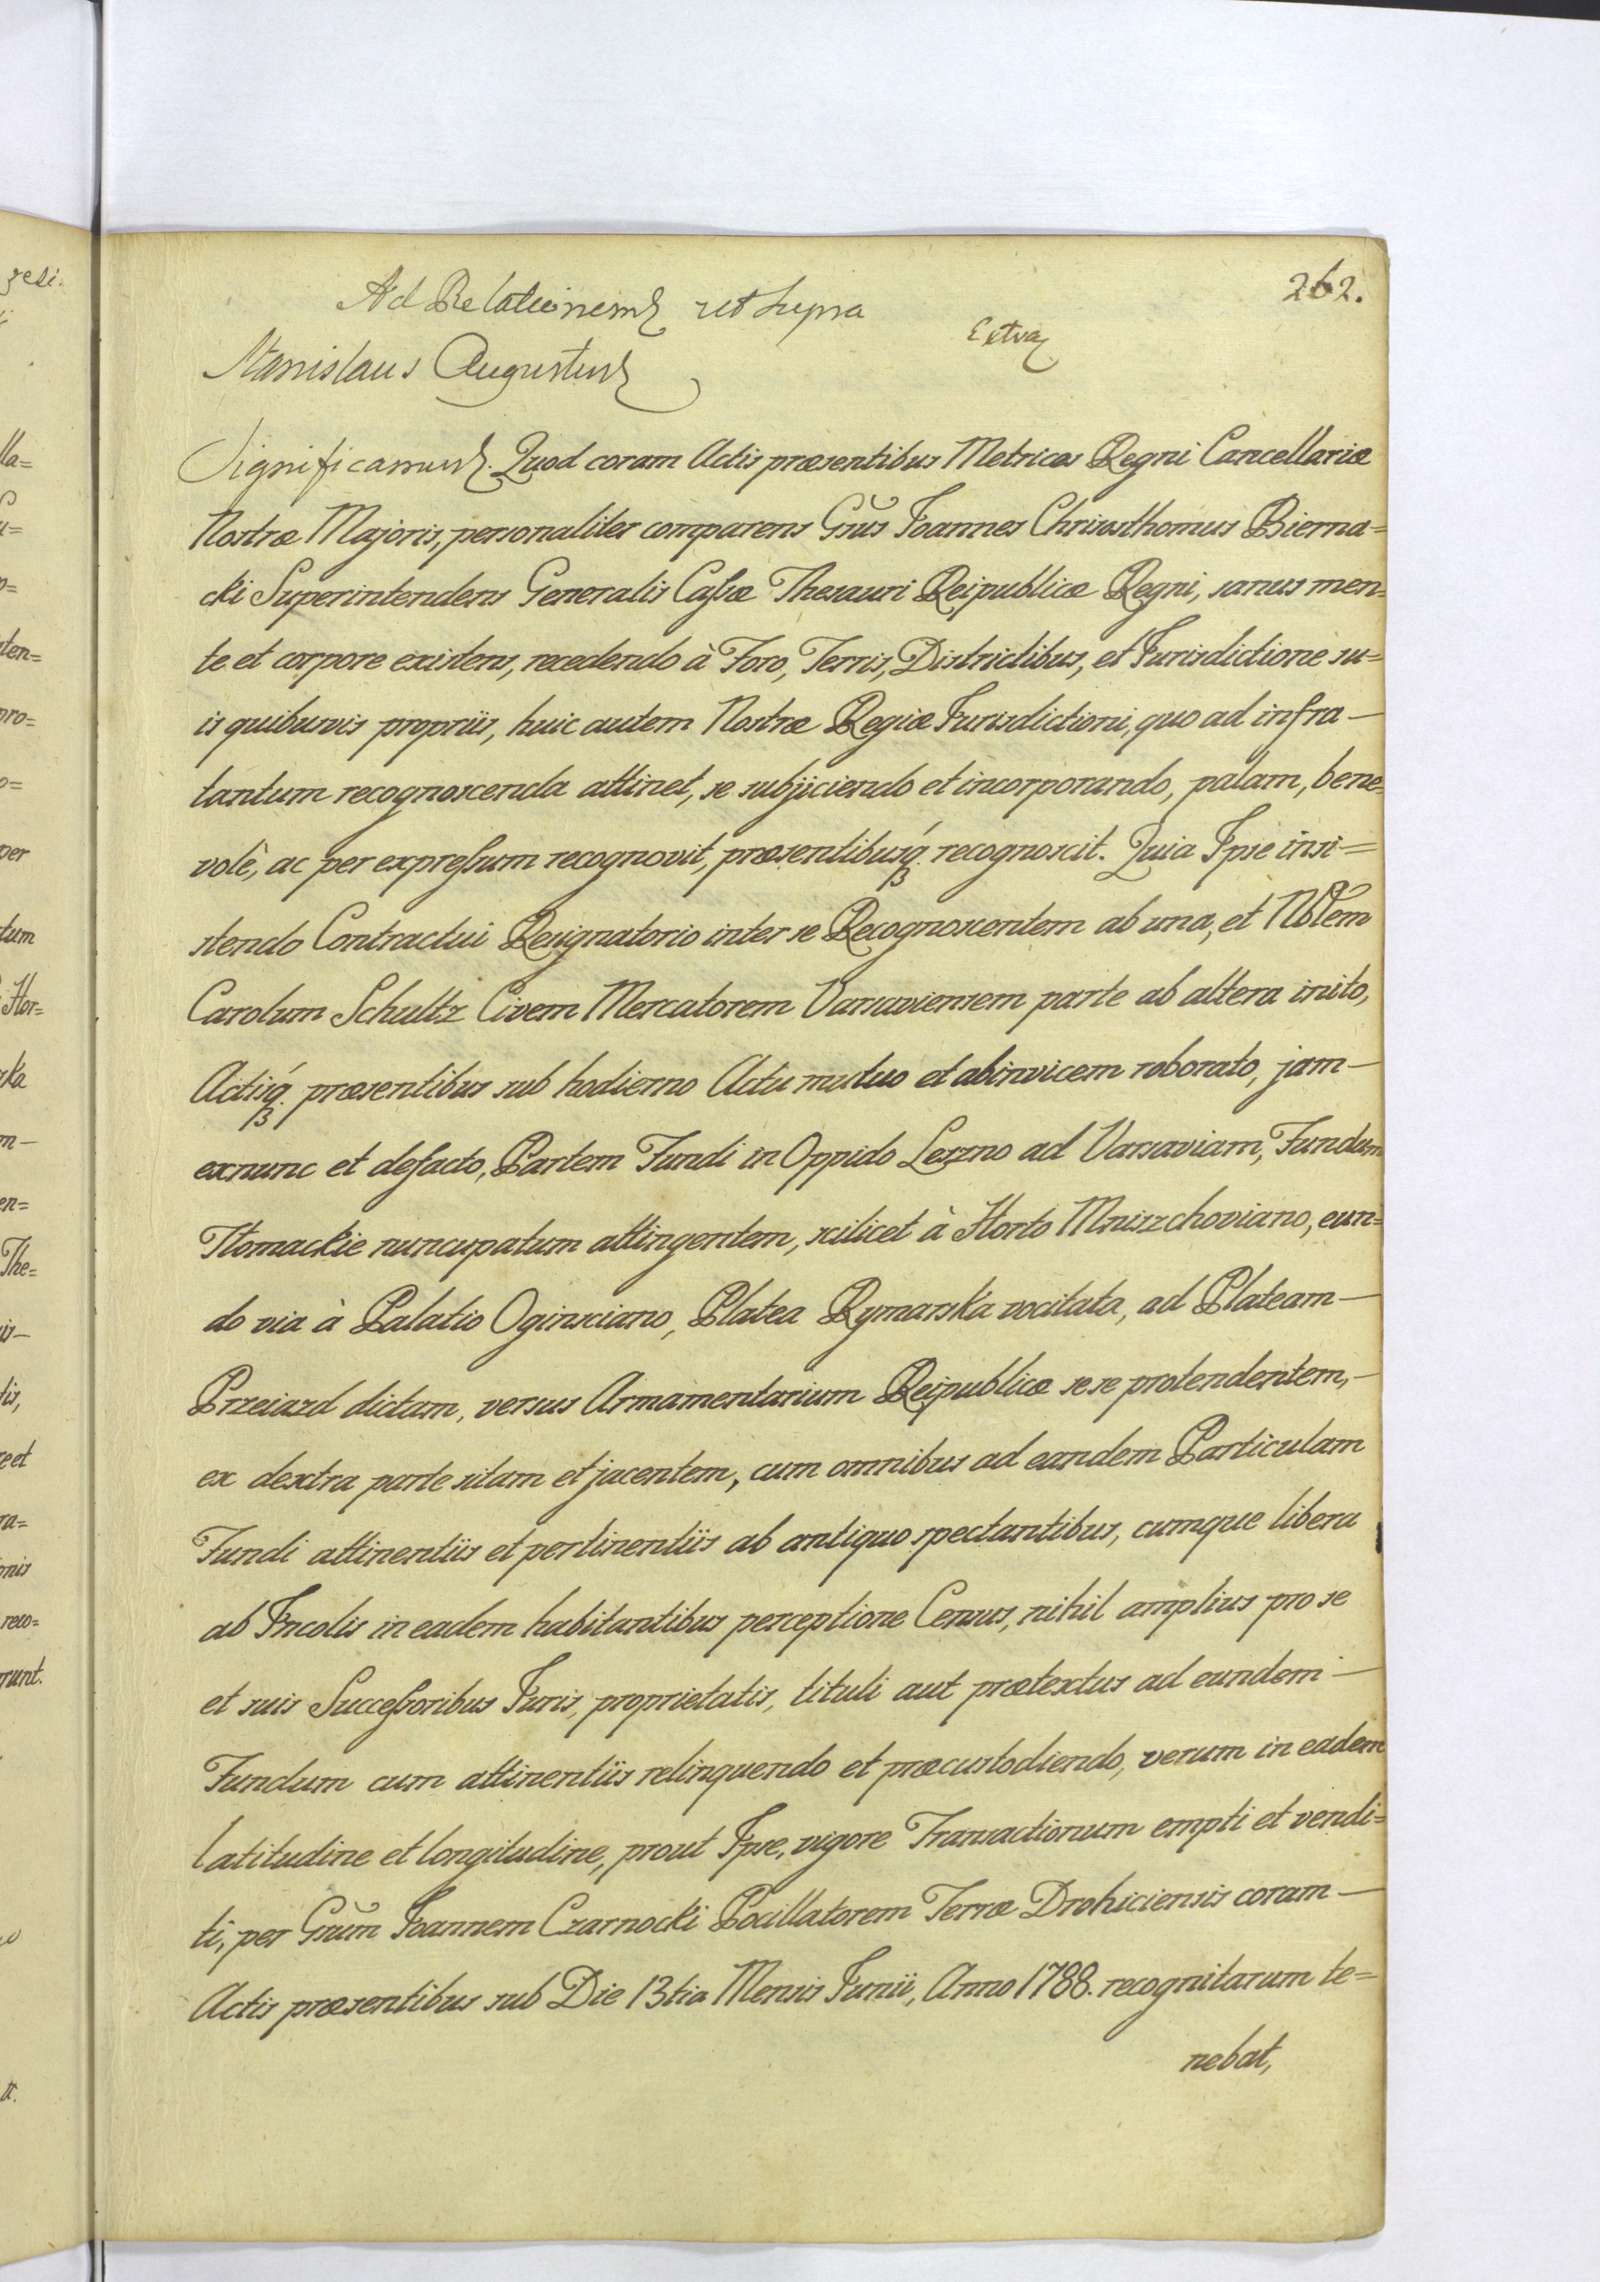 262.
Ad Relationem ut supra
Extra
Stanislaus Augustus
Significamus. Quod coram Actis præsentibus Metrices Regni Cancellariæ
Nostræ Majoris, personaliter comparens Gsus Joannes Chrisosthomus Bierna=
cki Superintendens Generalis Cassæ Thesauri Reipublicæ Regni, sanus men=
te et corpore existens, recedendo à Foro, Terris, Districtibus, et Jurisdictione su=
is quibusvis propriis, huic autem Nostræ Regiæ Jurisdictioni, quo ad infra—
tantum recognoscenda attinet, se subjiciendo et incorporando, palam, bene=
volè, ac per expressum recognovit, præsentibusq. recognoscit. Quia Ipse insi=
stendo Contractui Resignatorio inter se Recognoscentem ab una, et Nobtem
Carolum Schultz Civem Mercatorem Varsaviensem parte ab altera inito,
Actisq. præsentibus sub hodierno Actu mutuo et abinvicem roborato, jam—
exnunc et defacto, Partem Fundi in Oppido Leszno ad Varsaviam, Fundum
Tłomackie nuncupatum attingentem, scilicet à Horto Mniszchoviano, eun=
do via à Palatio Oginsciano, Platea Rymarska vocitata, ad Plateam—
Przeiazd dictam, versus Armamentarium Reipublicæ sese protendentem,—
ex dextra parte sitam et jacentem, cum omnibus ad eandem Particulam
Fundi attinentiis et pertinentiis ab antiquo spectantibus, cumque libera
ab Incolis in eadem habitantibus perceptione Census, nihil amplius pro se
et suis Successoribus Juris, proprietatis, tituli aut prætextus ad eundem—
Fundum cum attinentiis relinquendo et præcustodiendo, verum in eadem
latitudine et longitudine, prout Ipse, vigore Transactionum empti et vendi=
ti, per Gsum Joannem Czarnocki Pocillatorem Terræ Drohiciensis coram—
Actis præsentibus sub Die 13tia Mensis Junii, Anno 1788. recognitarum te=
nebat,